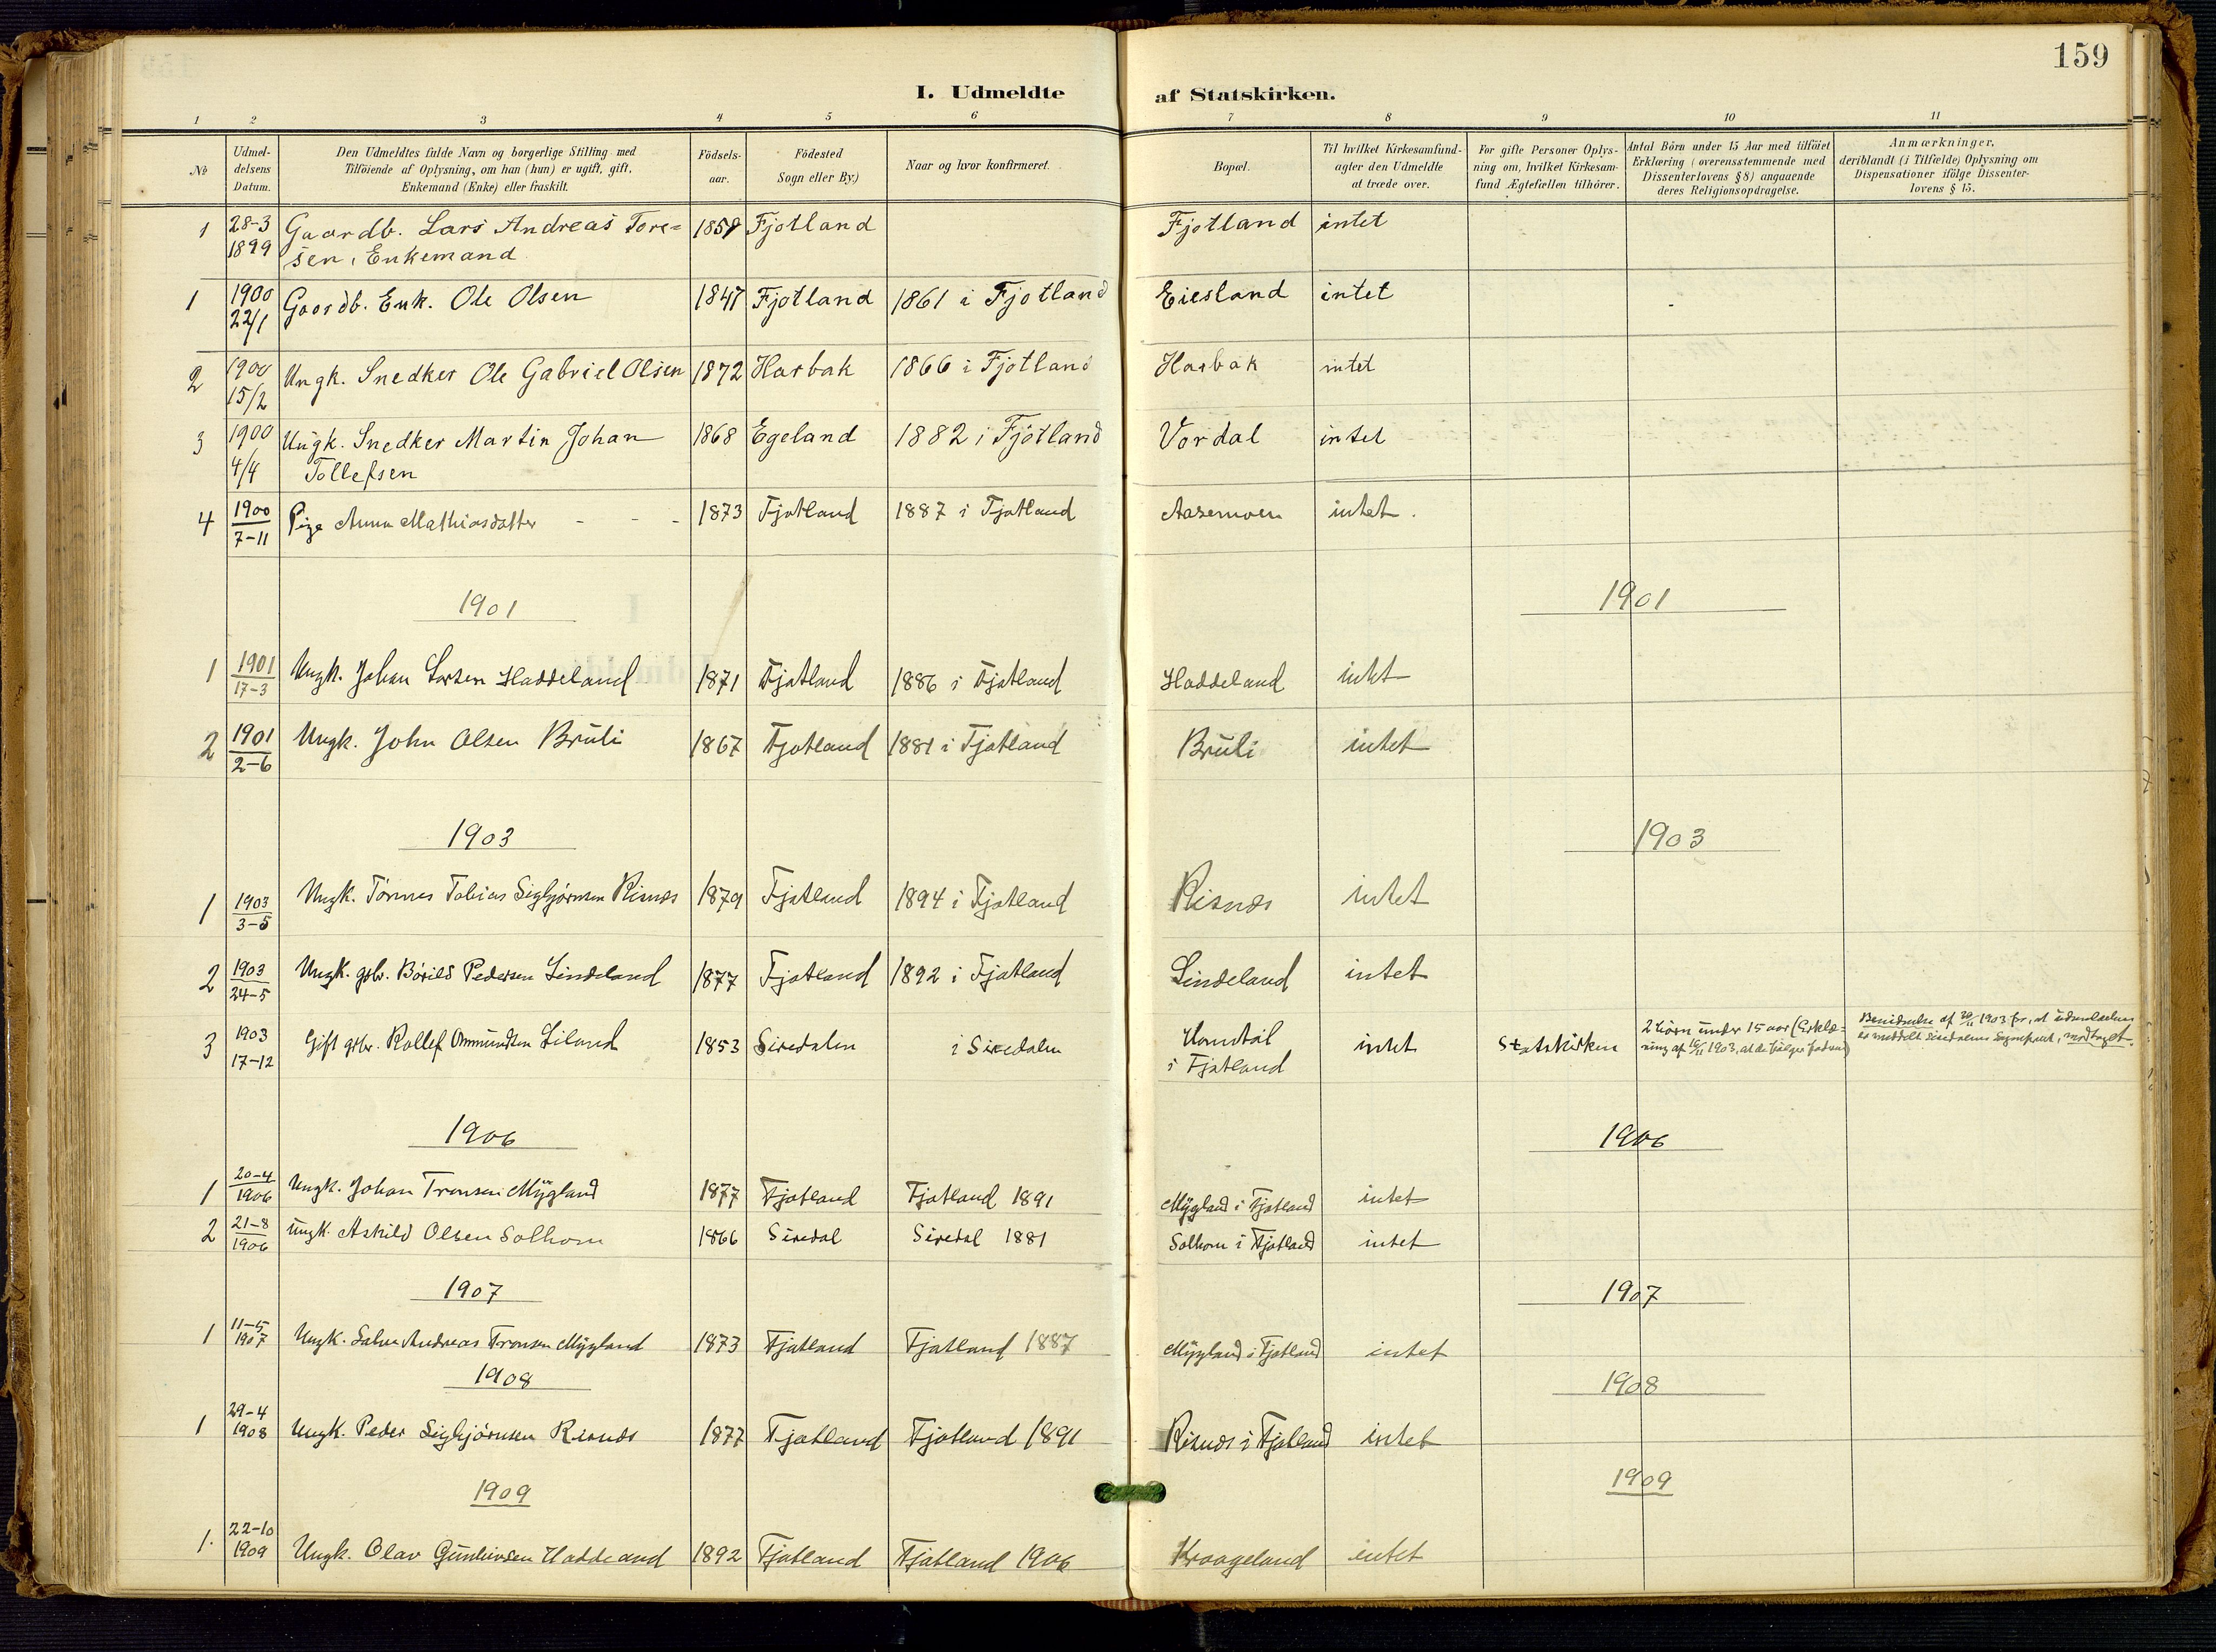 159
I. Udmeldte af Statskirken.
1 2 3 4 5 6 7 8 9 10 11
No
Udmeldelsens Datum.
Den Udmeldtes fulde Navn og borgerlige Stilling med
Tilföiende af Oplysning, om han (hun) er ugift, gift,
Enkemand (Enke) eller fraskilt.
Födsels-
aar.
Födested
Sogn eller By.)
Naar og hvor konfirmeret.
Bopæl.
Til hvilket Kirkesamfund-
agter den Udmeldte
at træde over.
For gifte Personer Oplys-
ning om, hvilket Kirkesam-
fund Ægtefællen tilhörer.
Antal Börn under 15 Aar med tilföiet
Erklæring (overensstemmende med
Dissenterlovens § 8) angaaende
deres Religionsopdragelse.
Anmærkninger,
deriblandt (i Tilfælde) Oplysning om
Dispensationer ifölge Dissenter-
lovens § 15.
1 28-3 1899 Gaardb. Lars Andreas Tore=
sen, Enkemand Fjotland Fjotland intet
1 1900 22/1 Gaardb. Enk. Ole Olsen 1847 Fjotland 1861 i Fjotland Eiesland intet
2 1900 15/2 Ungk. Snedker Ole Gabriel Olsen 1872 Harbak 1866 i Fjotland Harbak intet
3 1900 4/4 Ungk. Snedker Martin Johan
Tollefsen 1868 Egeland 1882 i Fjotland Vordal intet
4 1900 7-11 Pige Anna Mathiasdatter - - - 1873 Fjotland 1887 i Fjotland Aasemoen intet.
1901 1901
1 1901 17-3 Ungk. Johan Larsen Haddeland 1871 Fjotland 1886 i Fjotland Haddeland intet
2 1901 2-6 Ungk. John Olsen Brŭli 1867 Fjotland 1881 i Fjotland Brŭli intet
1903 1903
1 1903 3-5 Ungk. Tønnes Tobias Sigbjørnsen Risnes 1879 Fjotland 1894 i Fjotland Risnes intet
2 1903 24-5 Ungk. gbr. Bårild Pedersen Lindeland 1877 Fjotland 1892 i Fjotland Lindeland intet
3 1903 17-12 Gift gbr. Rollef Ommundsen Liland 1853 Siredalen i Siredalen
i Fjotland intet Statskirken
2 börn ŭnder 15 aar (Erklæ=
ning af 16/11 1903, at de følger
1906 1906
1 20-4 1906 Ungk. Johan Tronsen Mygland 1877 Fjotland Fjotland 1891 Mygland i Fjotland intet
2 21-8 1906 Ungk. Askild Olsen Solhom 1866 Siredal Siredal 1881 Solhom i Fjotland intet
1907 1907
1 11-5 1907 Ungk. Salve Andreas Tronsen Mygland 1873 Fjotland Fjotland 1887 Mygland i Fjotland intet
1908 1908
1 29-4 1908 Ungk. Peder Sigbjørnsen Risnes 1877 Fjotland Fjotland 1891 Risnes i Fjotland intet
1909 1909
1. 22-10 1909 Ungk. Olav Gŭnleivsen Haddeland 1892 Fjotland Fjotland 1906 Kraageland intet